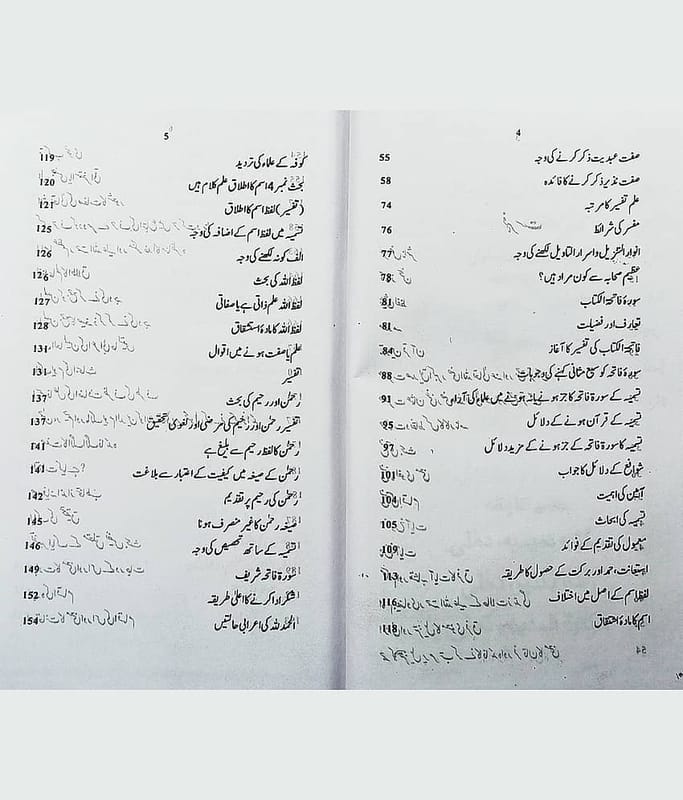 4
صفت عبدیت ذکر کرنے کی وجہ 55
صفت نذیر ذکر کرنے کا فائدہ 58
علم تفسیر کا مرتبہ 74
مفسر کی شرائط 76
انوار التنزیل واسرار التاویل لکھنے کی وجہ 77
عظیم صحابہ سے کون مراد ہیں؟ 78
سورۃ فاتحۃ الکتاب 81
تعارف اور فضیلت 81
فاتحۃ الکتاب کی تفسیر کا آغاز 84
سورۃ فاتحہ کو سبع مثانی کہنے کی وجوہات 88
تسمیہ کے سورۃ فاتحہ کا جز ہونے یا نہ ہونے میں علماء کی آراء 91
تسمیہ کے قرآن ہونے کے دلائل 95
تسمیہ کا سورۃ فاتحہ کے جز ہونے کے مزید دلائل 97
شوافع کے دلائل کا جواب 101
آمین کی اہمیت 104
تسمیہ کی ابحاث 105
معمول کی تقدیم کے فوائد 109
استعانت، حمد اور برکت کے حصول کا طریقہ 113
لفظ اسم کے اصل میں اختلاف 116
اسم کا مادۂ اشتقاق 118
5
کوفہ کے علماء کی تردید 119
بحث نمبر 4 اسم کا اطلاق علم کلام میں 120
(تفسیر) لفظ اسم کا اطلاق 121
تسمیہ میں لفظ اسم کے اضافہ کی وجہ 125
الف کو نہ لکھنے کی وجہ 126
لفظ اللہ کی بحث 126
لفظ اللہ علم ذاتی ہے یا صفاتی 127
لفظ اللہ کا مادۂ اشتقاق 128
علم یا صفت ہونے میں اقوال 131
تفسیر 131
رحمٰن اور رحیم کی بحث 137
تفسیر رحمٰن اور رحیم کی صرفی اور لغوی تحقیق 137
رحمٰن کا لفظ رحیم سے بلیغ ہے 141
رحمٰن کے صیغہ میں کیفیت کے اعتبار سے بلاغت 141
رحمٰن کی رحیم پر تقدیم 142
صیغہ رحمٰن کا غیر منصرف ہونا 145
تسمیہ کے ساتھ تخصیص کی وجہ 146
سورۃ فاتحہ شریف 149
شکر ادا کرنے کا اعلیٰ طریقہ 152
الحمد للہ کی اعرابی حالتیں 154